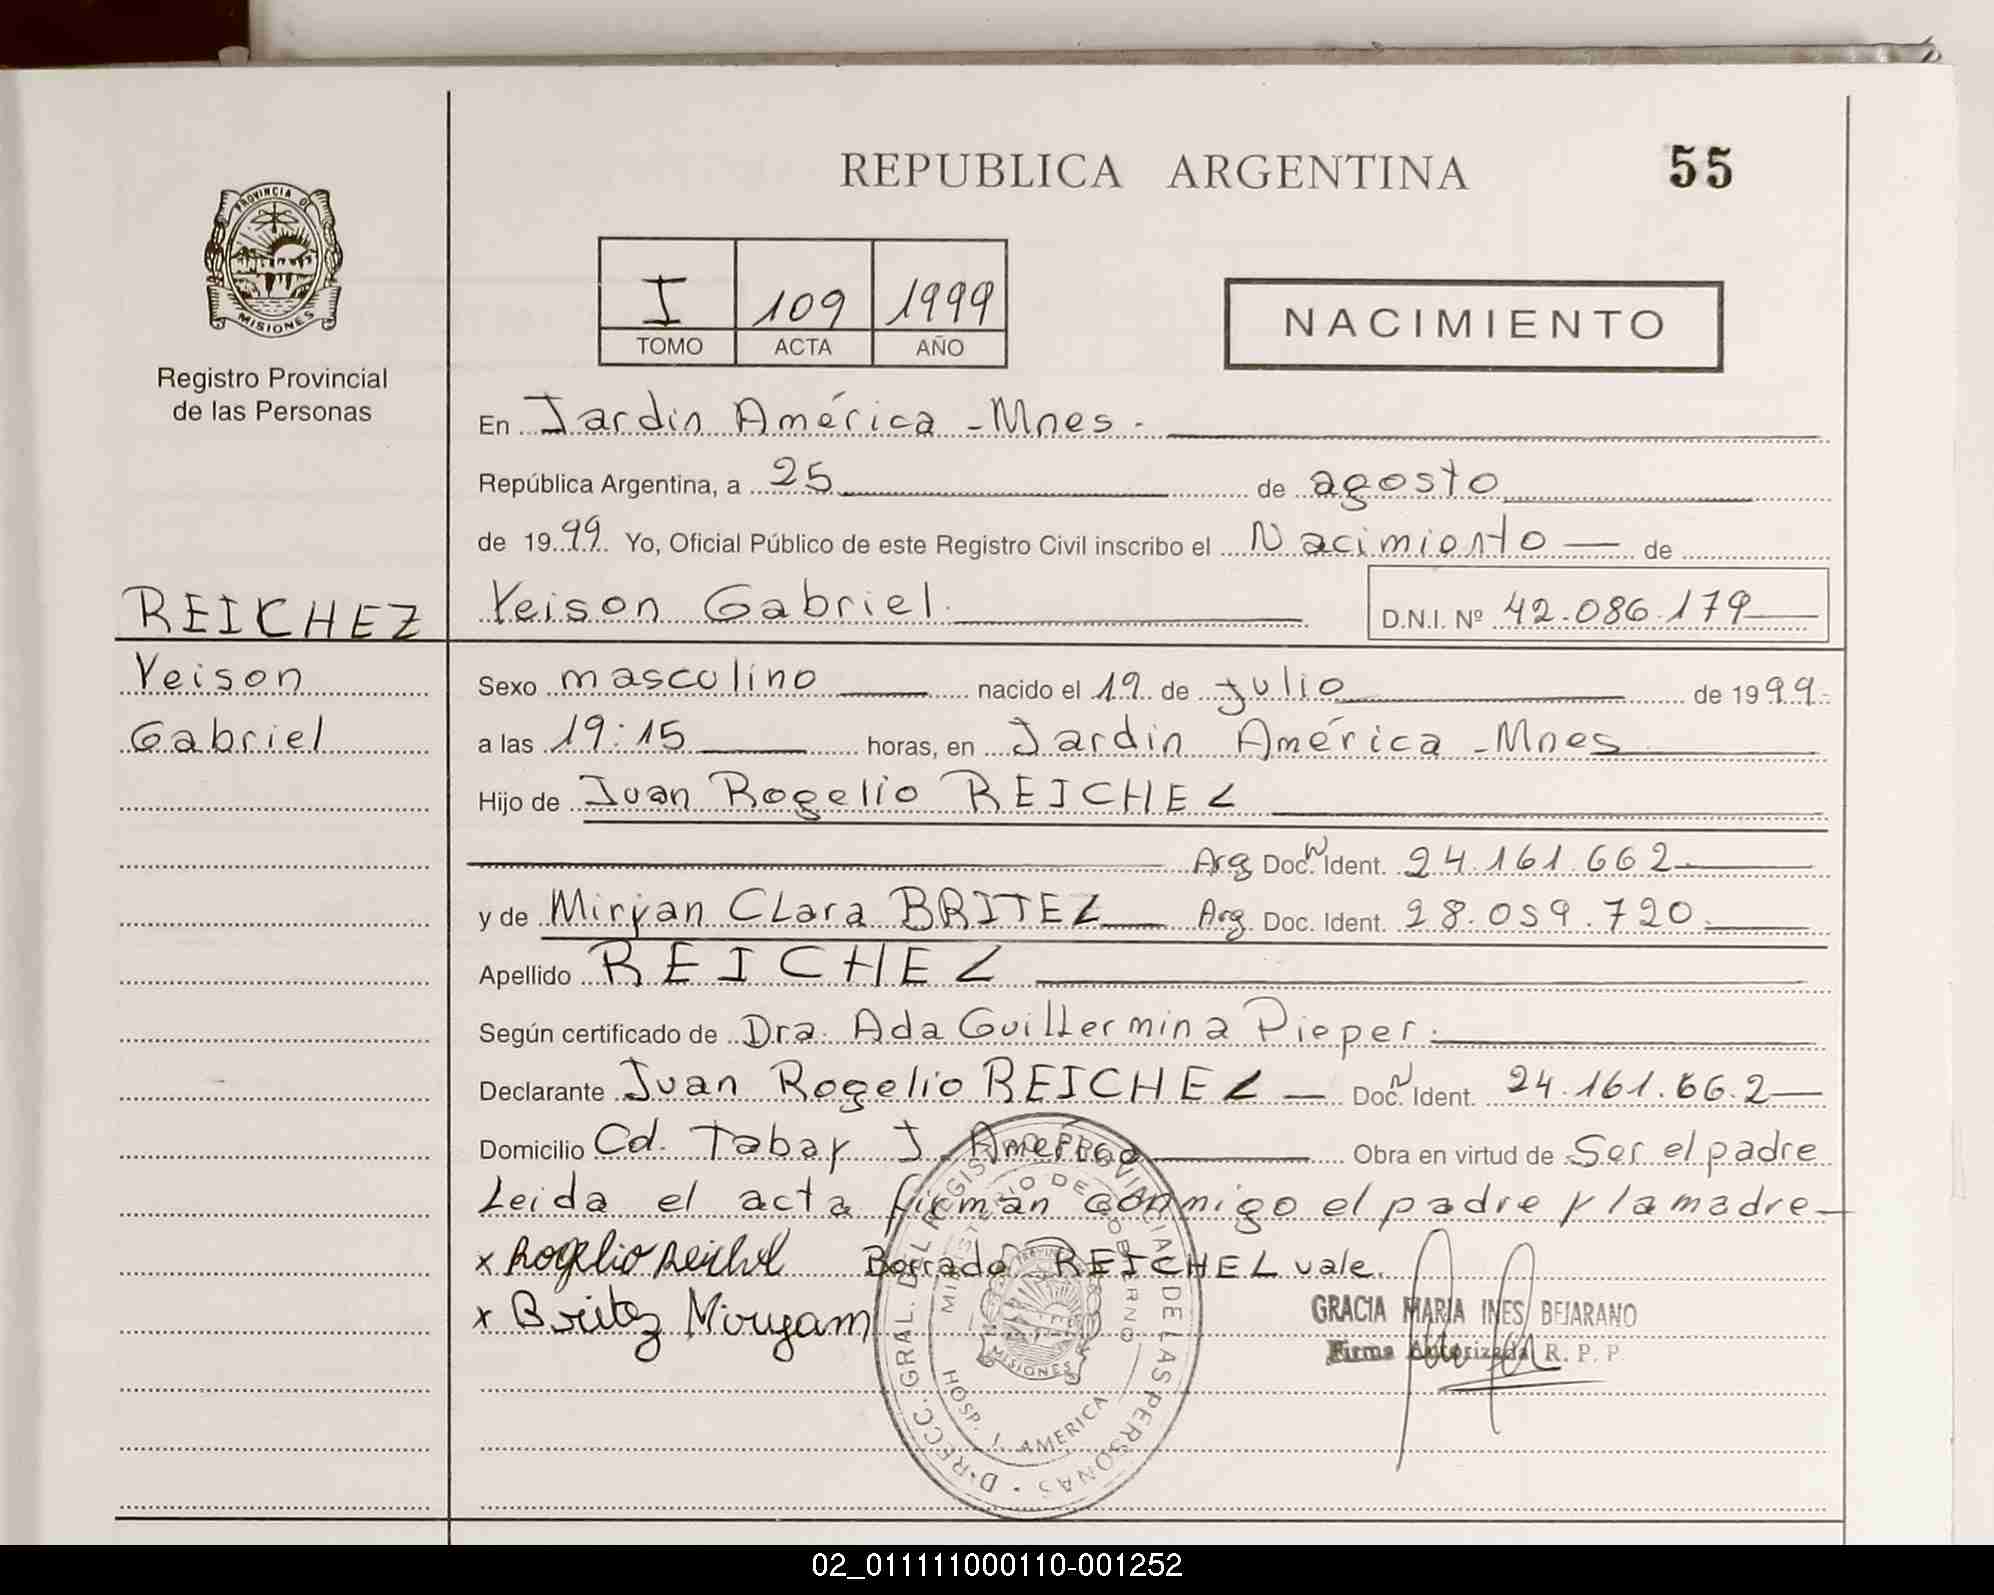 REPUBLICA ARGENTINA
55
PROVINCIA DE
MISIONES
Registro Provincial
de las Personas
I 109 1999
TOMO ACTA AÑO
NACIMIENTO
En Jardin América - Mnes.
República Argentina, a 25 de agosto
de 1999 Yo, Oficial Público de este Registro Civil inscribo el Nacimiento de
REICHEZ
Yeison Gabriel. D.N.I. Nº 42.086.179
Yeison
Sexo masculino nacido el 19 de julio de 1999.
Gabriel
a las 19:15 horas, en Jardin América - Mnes
Hijo de Juan Rogelio REICHEL
Arg Doc. N Ident. 24.161.662
y de Miryan Clara BRITEZ Arg. Doc. Ident. 28.059.720.
Apellido REICHEL
Según certificado de Dra. Ada Guillermina Pieper.
Declarante Juan Rogelio REICHEL Doc. N Ident. 24.161.662
Domicilio Cd. Tabay J. América Obra en virtud de Ser el padre
Leida el acta firman conmigo el padre y la madre
x Rogelio Reichel Borrado REICHEL vale.
x Britez Miryam
GRACIA MARIA INES BEJARANO
Firma Autorizada R. P. P.
D-RECC. GRAL. DEL REGISTRO PROVINCIAL DE LAS PERSONAS
MINISTERIO DE GOBIERNO
HOSP. J. AMERICA
MISIONES
02_011111000110-001252